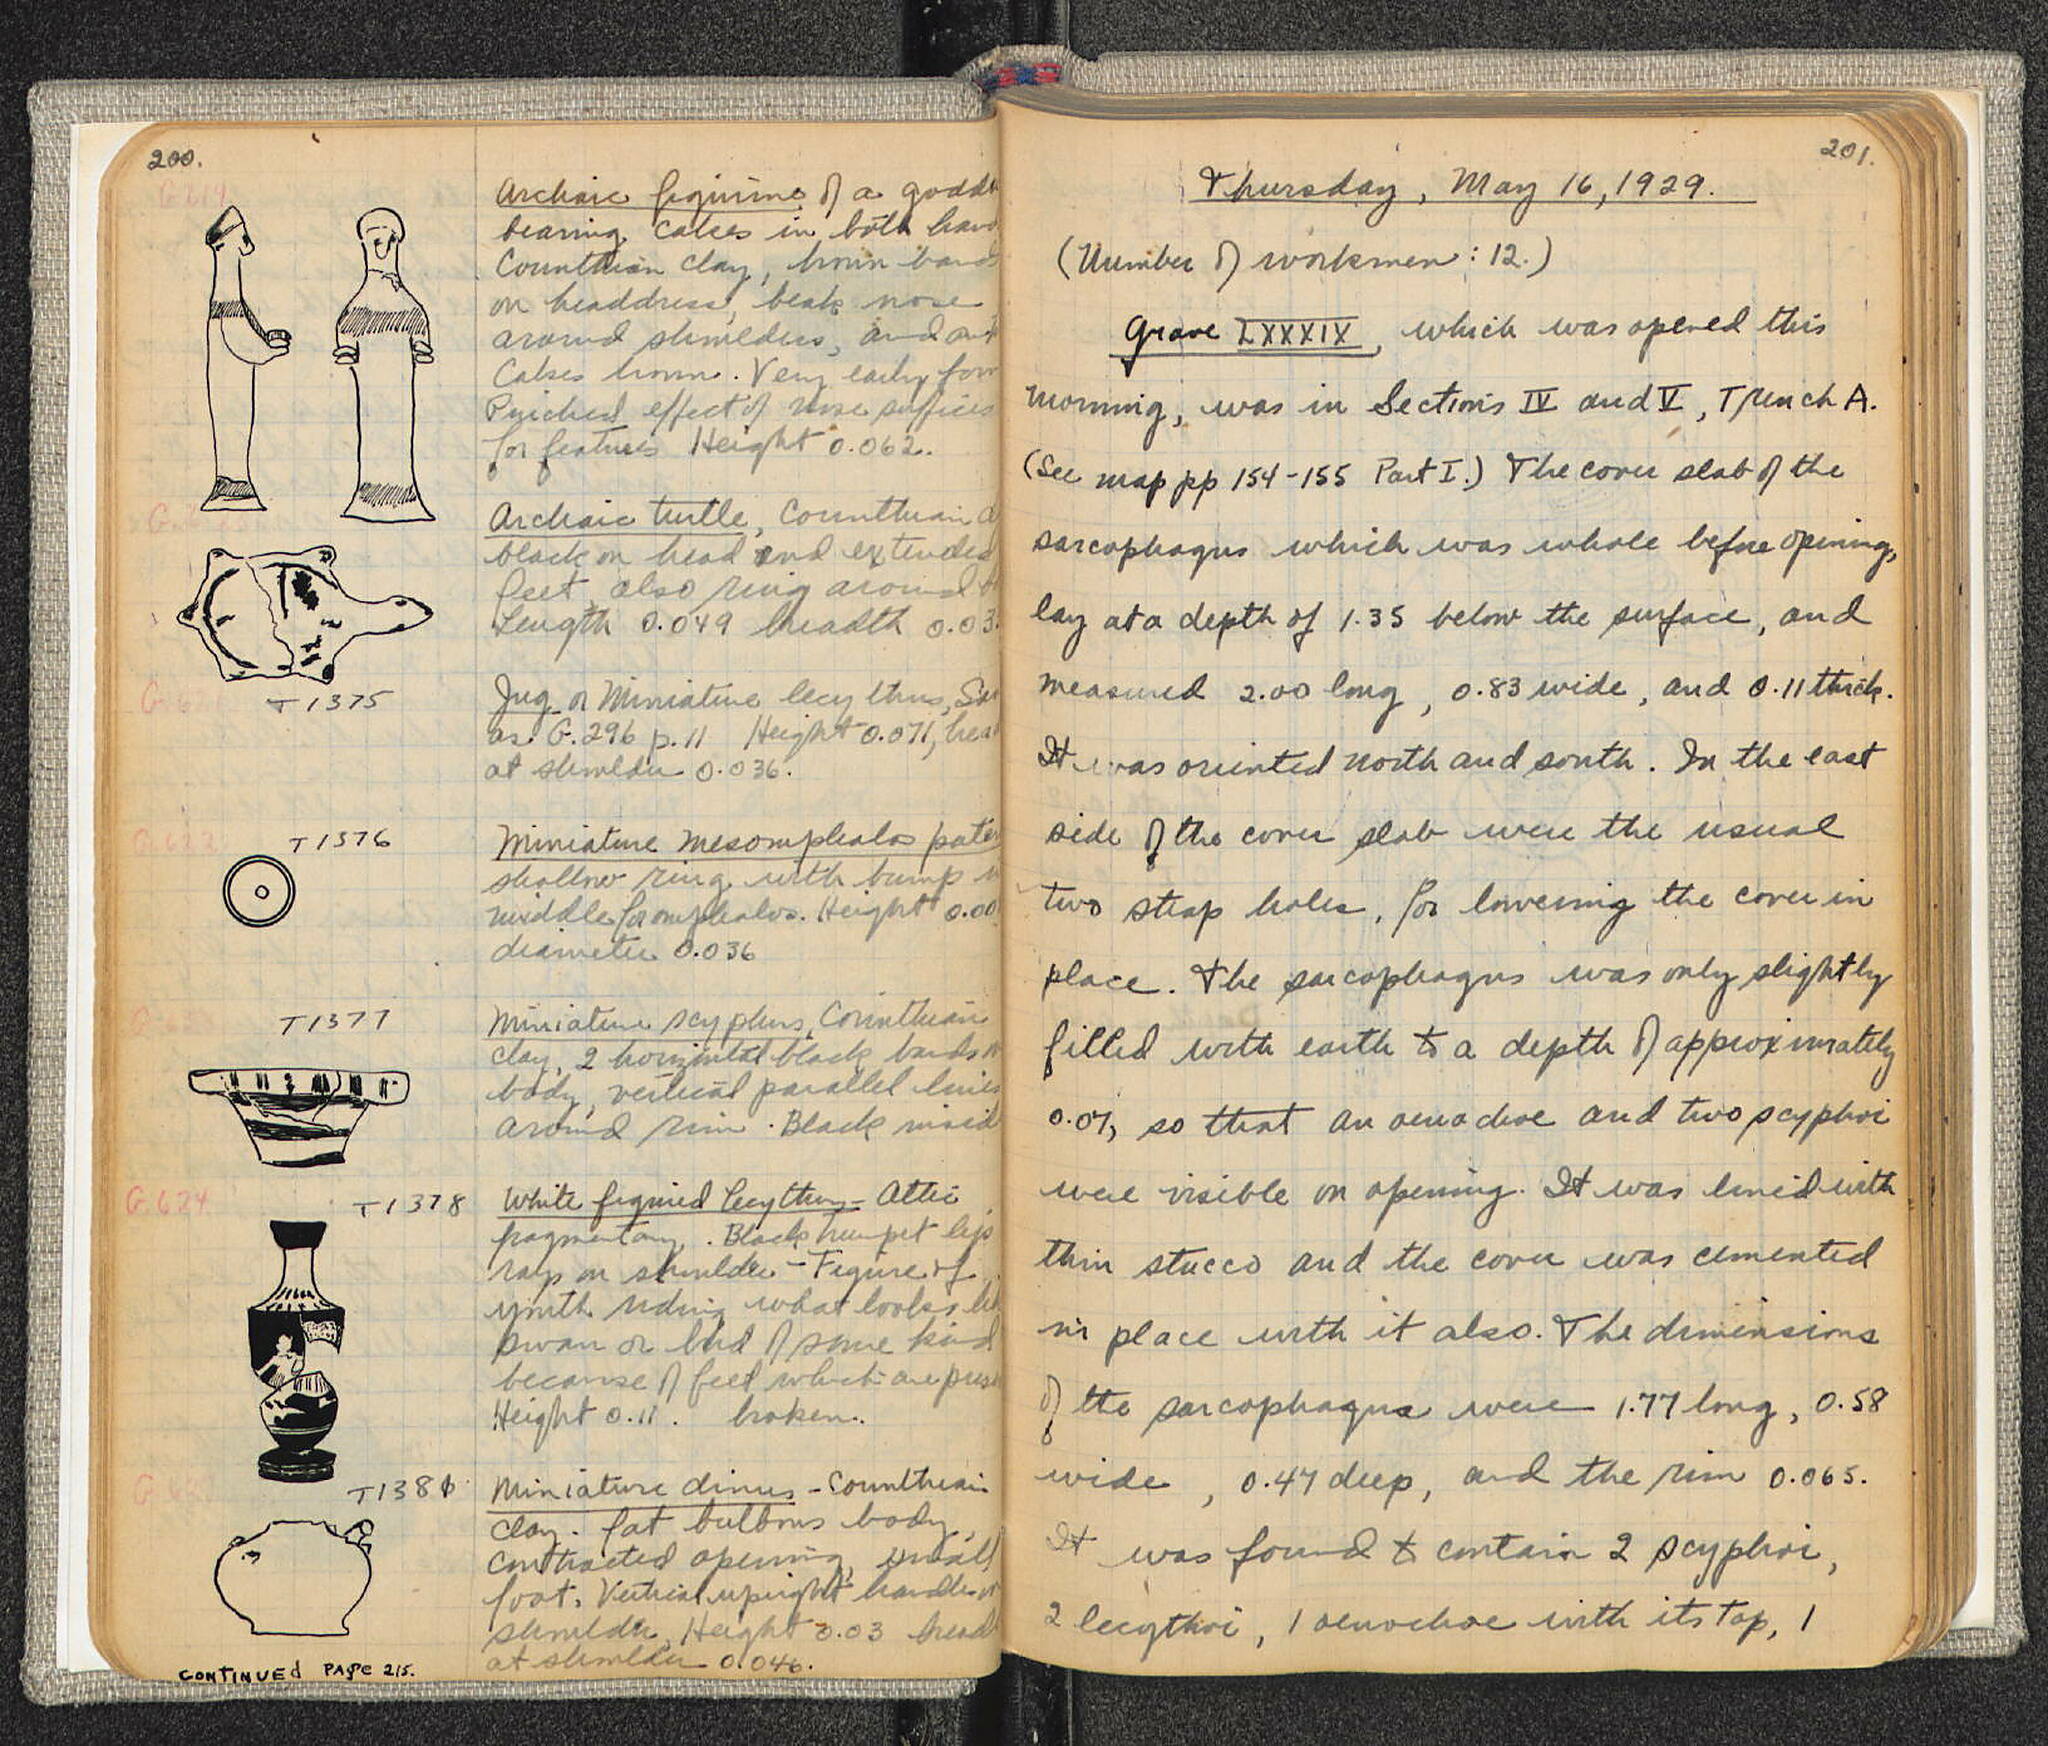 200.
G 619
Archaic figurine of a godd
bearing cakes in both hand
Corinthian clay, brown bands
on headdress, beak nose
around shoulders, and on
Cakes brown. Very early form
Pinched effect of nose suffices
for features Height 0.062.
Archaic turtle, Corinthian
black on head and extended
feet, also ring around
Length 0.049 breadth 0.03
T1375
Jug or Miniature lecythus, Sam
as G.296 p.11 Height 0.071, brea
at shoulder 0.036.
G 622
T1376
Miniature mesomphalos pater
shallow ring with bump
middle for omphalos. Height 0.00
diameter 0.036
T1377
Miniature scyphus, Corinthian
clay, 2 horizontal black bands
body, vertical parallel lines
around rim. Black insid
G 624
T1378
White figured Lecythus - Attic
fragmentary. Black trumpet lip
rays on shoulder - Figure of
youth riding what looks
swan or bird of some kind
because of feet which are pres
Height 0.11. broken.
T1380
Miniature dinus - Corinthian
clay. fat bulbous body,
contracted opening, small
foot. Vertical upright handles
shoulder, Height 0.03 bread
at shoulder 0.046.
CONTINUEd PAge 215.
201.
Thursday, May 16, 1929.
(Number of workmen: 12.)
Grave LXXXIX, which was opened this
morning, was in Sections IV and V, Trench A.
(See map pp 154-155 Part I.) The cover slab of the
sarcophagus which was whole before opening,
lay at a depth of 1.35 below the surface, and
measured 2.00 long, 0.83 wide, and 0.11 thick.
It was oriented north and south. In the east
side of the cover slab were the usual
two strap holes, for lowering the cover in
place. The sarcophagus was only slightly
filled with earth to a depth of approximately
0.07, so that an oenochoe and two scyphoi
were visible on opening. It was lined with
thin stucco and the cover was cemented
in place with it also. The dimensions
of the sarcophagus were 1.77 long, 0.58
wide, 0.47 deep, and the rim 0.065.
It was found to contain 2 scyphoi,
2 lecythoi, 1 oenochoe with its top, 1